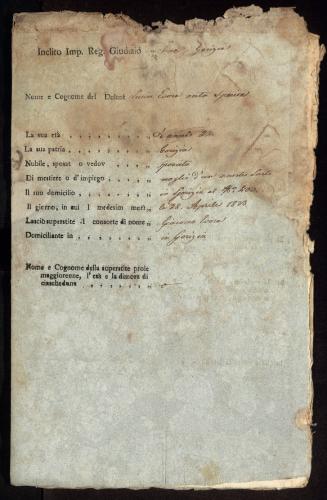 Inclito Imp. Reg. Giudizio in Gorizia
Nome e Cognome del Defont
La sua età . . . . . . . . d'anni
La sua patria . . . . . . . Gorizia
Nobile, sposat o vedov . . . . sposata
Di mestiere o d'impiego . . . . moglie d'un maestro Sarto
Il suo domicilio . . . . . . in Gorizia al Nro
Il giorno, in cui l medesim morì „ li 28. Aprile 1803.
Lasciò superstite il consorte di nome „ Giacomo
Domiciliante in . . . . . . in Gorizia
Nome e Cognome della superstite prole
maggiorenne, l'età e la dimora di
ciascheduna . . . . . . .